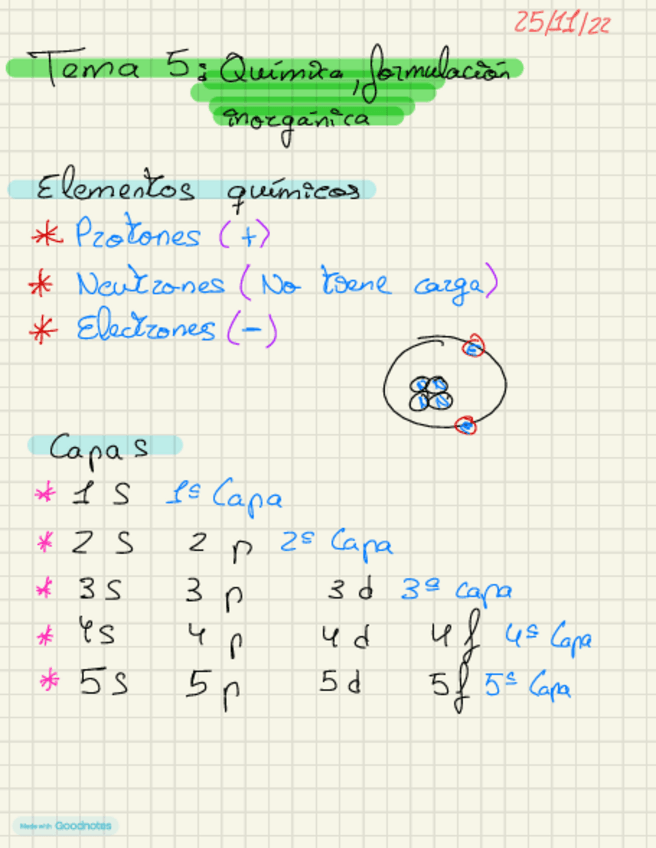 25/11/22
Tema 5: Química, formulación
inorgánica
Elementos químicos
* Protones (+)
* Neutrones (No tiene carga)
* Electrones (-)
Capas
* 1 s 1ª Capa
* 2 s 2 p 2ª Capa
* 3 s 3 p 3 d 3ª capa
* 4s 4 p 4 d 4 f 4ª Capa
* 5 s 5 p 5 d 5 f 5ª Capa
Made with Goodnotes